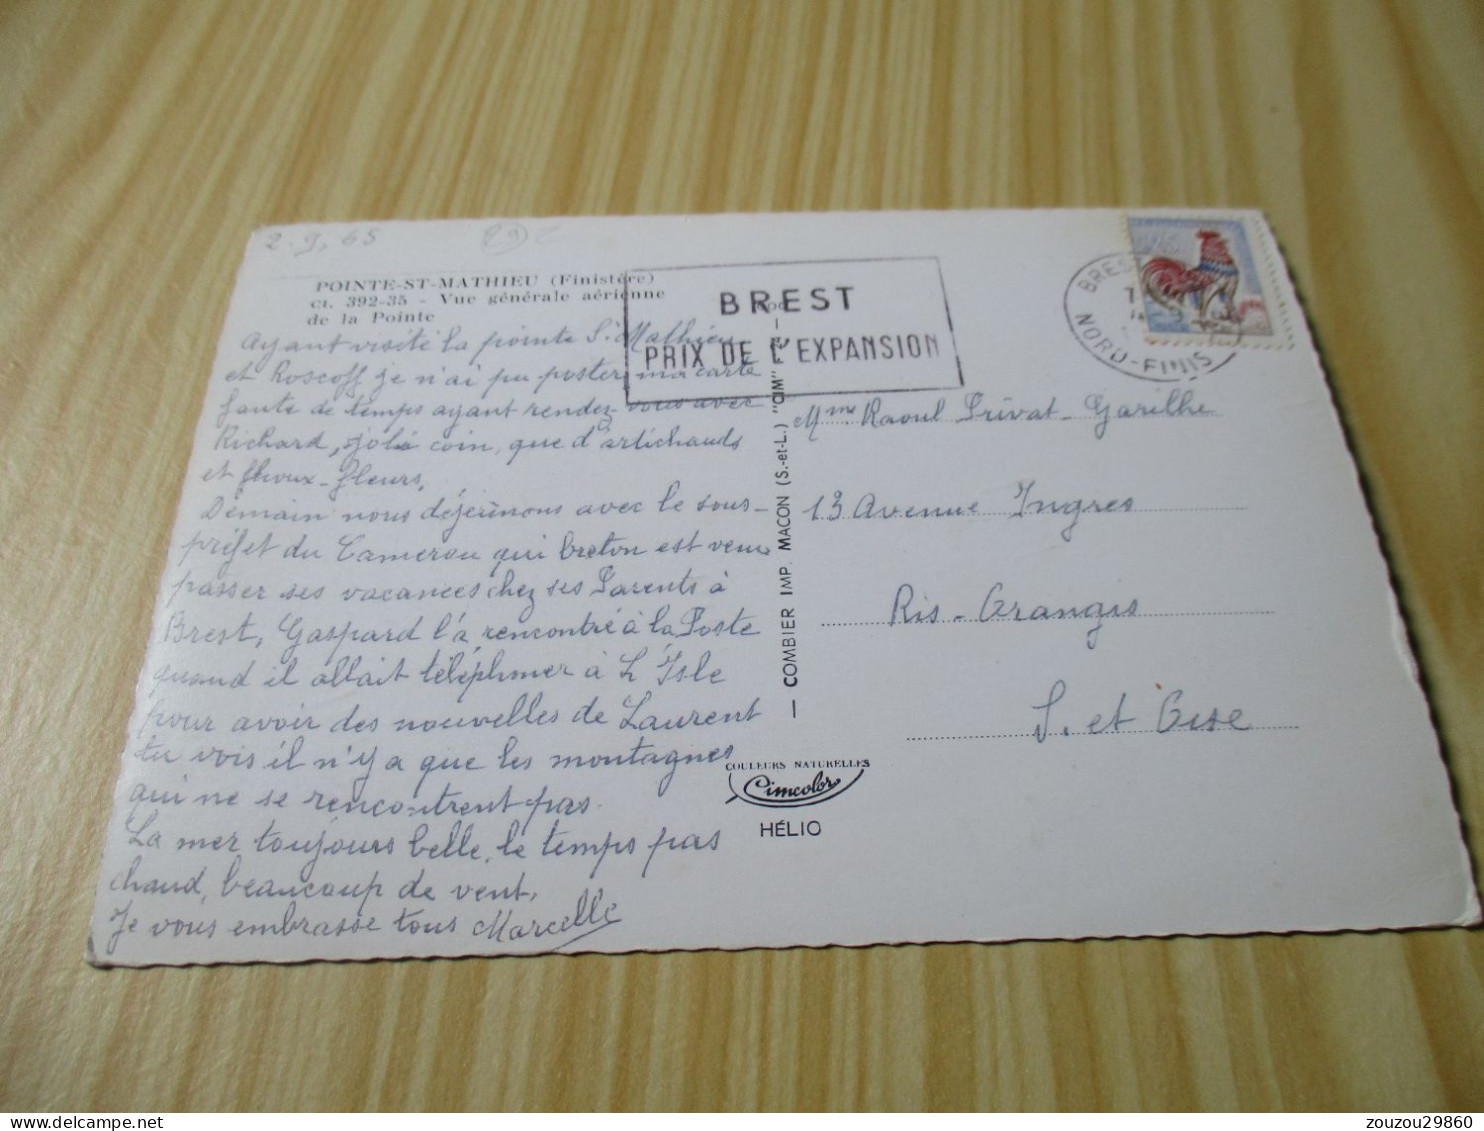 2.9.65
POINTE-ST-MATHIEU (Finistère)
ct. 392-35 - Vue générale aérienne
de la Pointe
BREST
PRIX DE L'EXPANSION
BREST
NORD-FINIS
Ayant visité la pointe St Mathieu
et Roscoff je n'ai pu poster ma carte
faute de temps ayant rendez-vous avec
Richard, joli coin, que d'artichauds
et choux-fleurs.
Demain nous déjeunons avec le sous-
préfet du Cameroun qui breton est venu
passer ses vacances chez ses Parents à
Brest, Gaspard l'a rencontré à la Poste
quand il allait téléphoner à L'Isle
pour avoir des nouvelles de Laurent
tu vois il n'y a que les montagnes
qui ne se rencontrent pas.
La mer toujours belle, le temps pas
chaud, beaucoup de vent.
Je vous embrasse tous Marcelle
— COMBIER IMP. MACON (S.-et-L.) "CIM"
COULEURS NATURELLES
Cimcolor
HÉLIO
Mme Raoul Privat-Garilhe
13 Avenue Ingres
Ris-Orangis
S. et Oise
zouzou29860